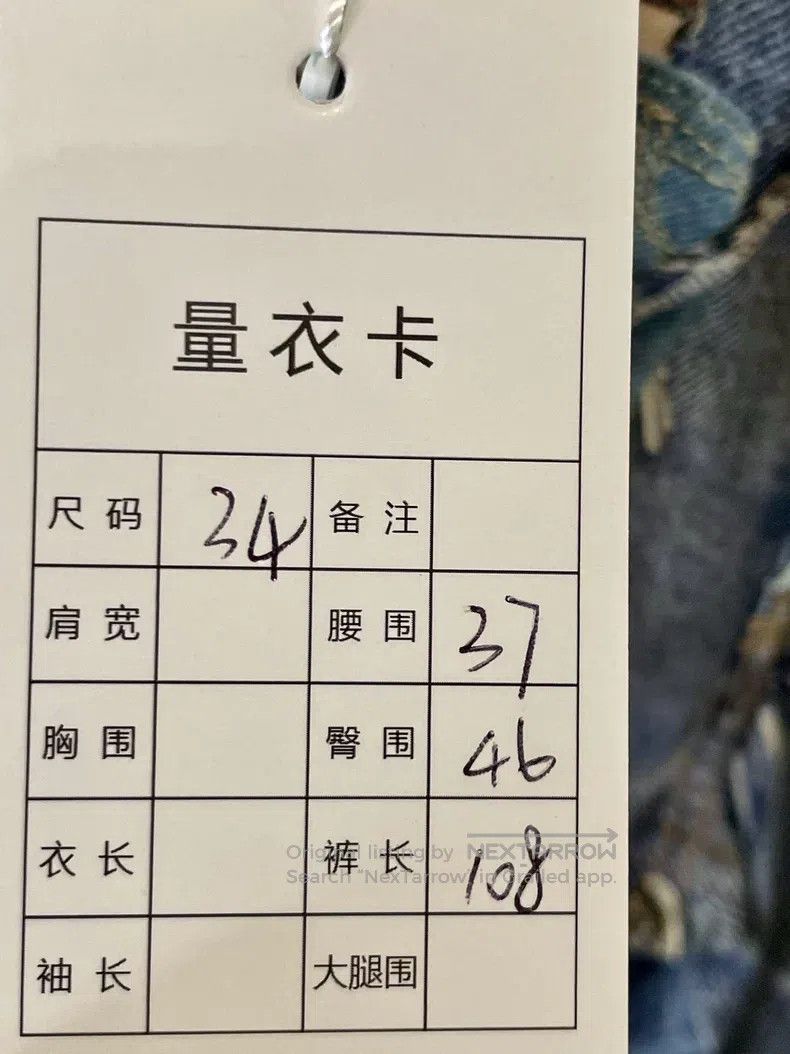 量衣卡
尺码 34 备注
肩宽 腰围 37
胸围 臀围 46
衣长 裤长 108
Original listing by NEXTARROW
Search "NexTarrow" in Grailed app.
袖长 大腿围